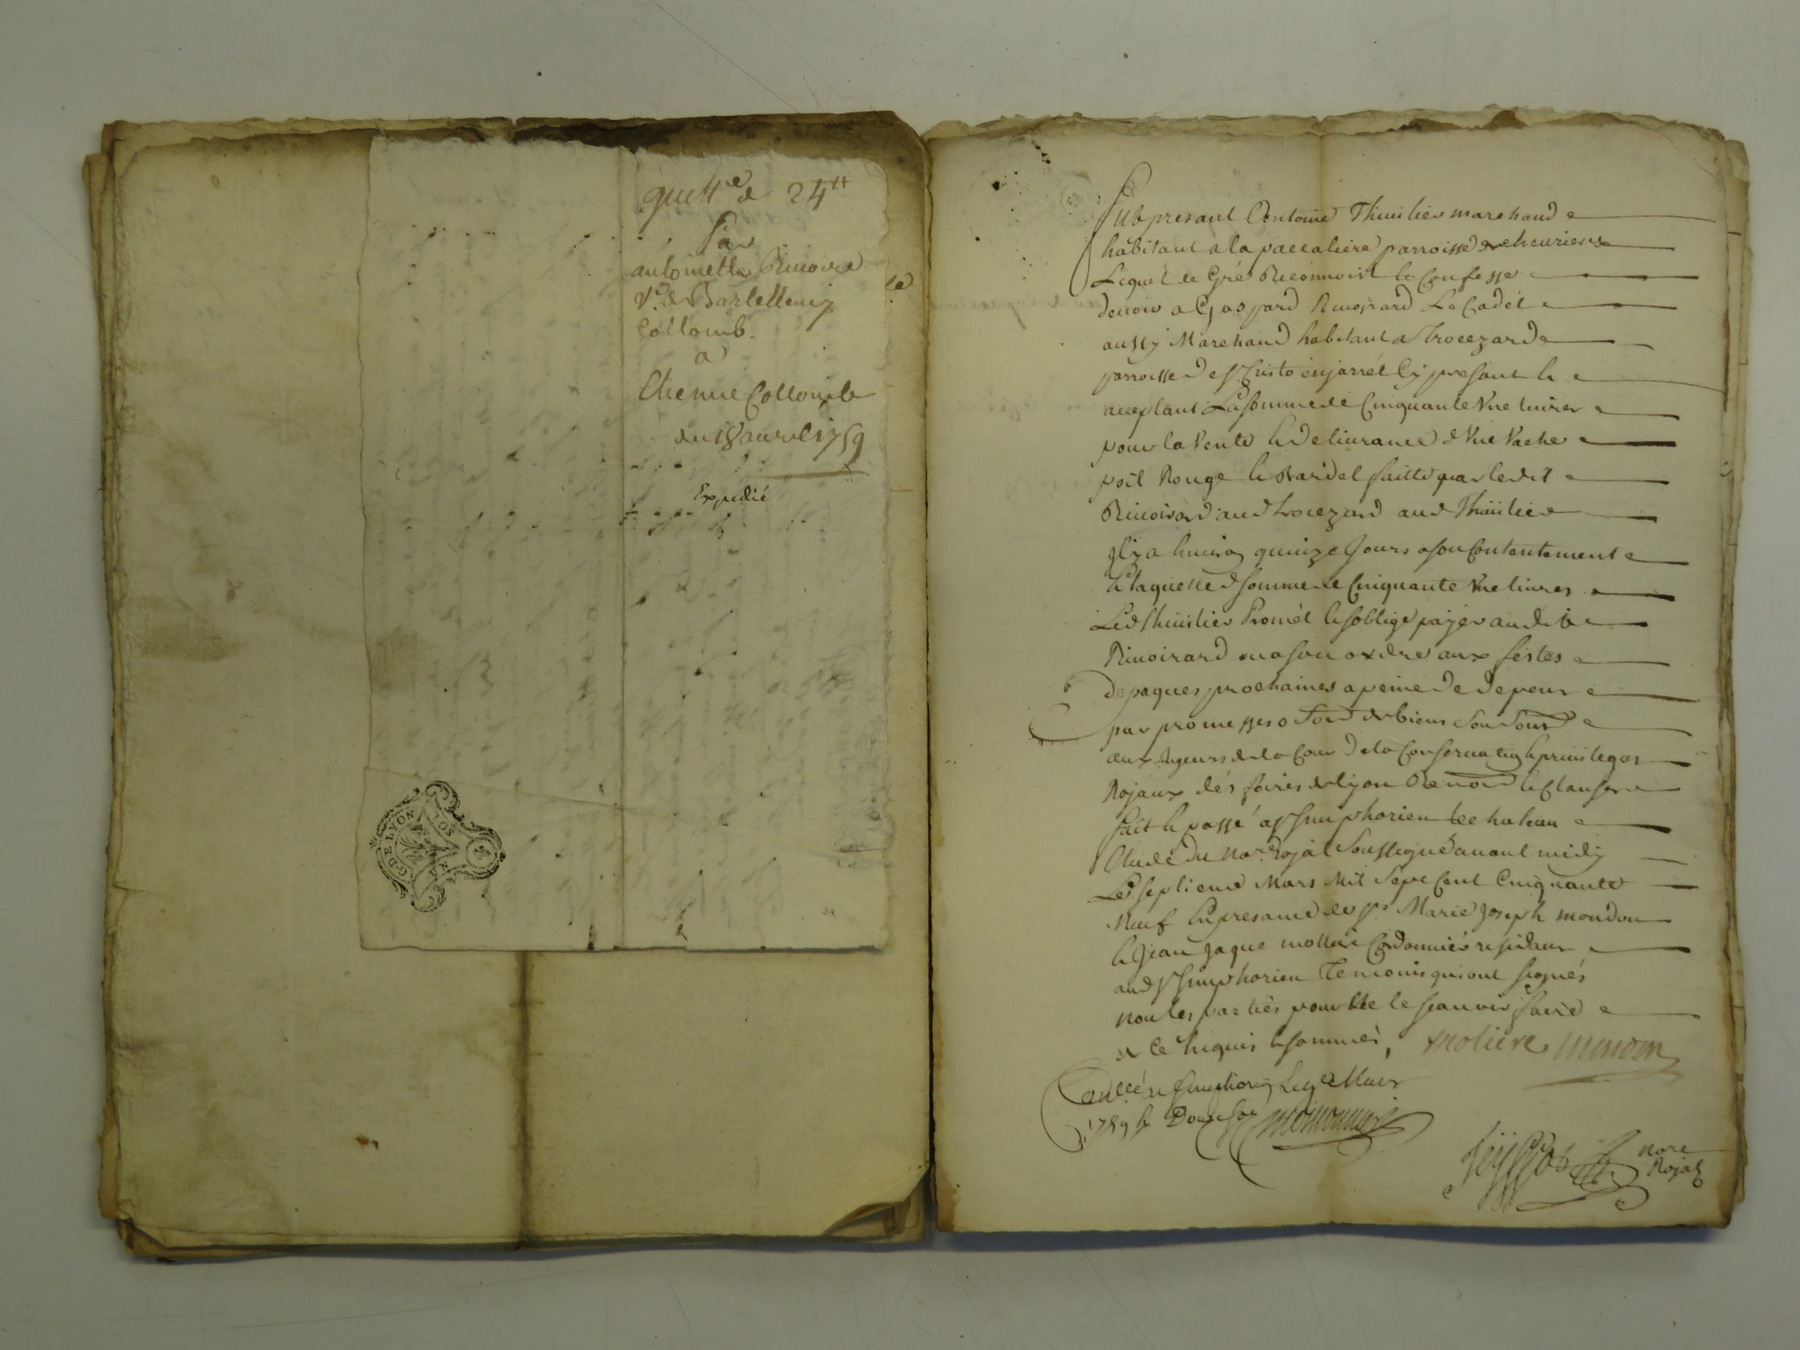 quitt.e de 24tt
Par
antoinette Rivoire
Ve de Bartellemy
Collomb
a
Etienne Collomb
du 18 avril 1759
Expedié
G DE LYON
Fut presant Antoine Thuilier marchand
habitant a la paccaliere parroisse de
Lequel de Gré Reconnoist et Confesse
devoir a Gaspard Rivoirard Le Cadét
aussy Marchand habitant a Trocezard
parroisse de St Cristo en jarrét Cy present et
acceptant La somme de Cinquante Une livres
pour la Vente et delivrance d'Une Vache
poil Rouge et Bardel faitte par ledit
Rivoirard aud Trocezard aud Thuilier
Il y a environ quinze Jours a son Contentement
Et laquelle d somme de Cinquante Une livres
Led Thuilier Promét et s'oblige payér audit
Rivoirard ou a son ordre aux festes
de paques prochaines a peine de depens
par promesses de biens
aux rigueurs de la Cour de la Conservation et privileges
Rojaux dés foires de lyon Renon et Clauses
fait et passé a St Simphorien le chateau
Etude du Nore Rojal Soussigné avant midy
Le septieme Mars Mil Sept Cent Cinquante
Neuf En presance de Sr Marie Joseph mondon
et Jean Jaque mollere Cordonniér residants
aud St Simphorien Temoins qui ont signés
non les partiés pour ne le scavoir faire
de Ce Enquis et sommés, moliere mondon
Conllé a St Simphorien Le 9e Mars
1759 Douze sols
nore
Rojal